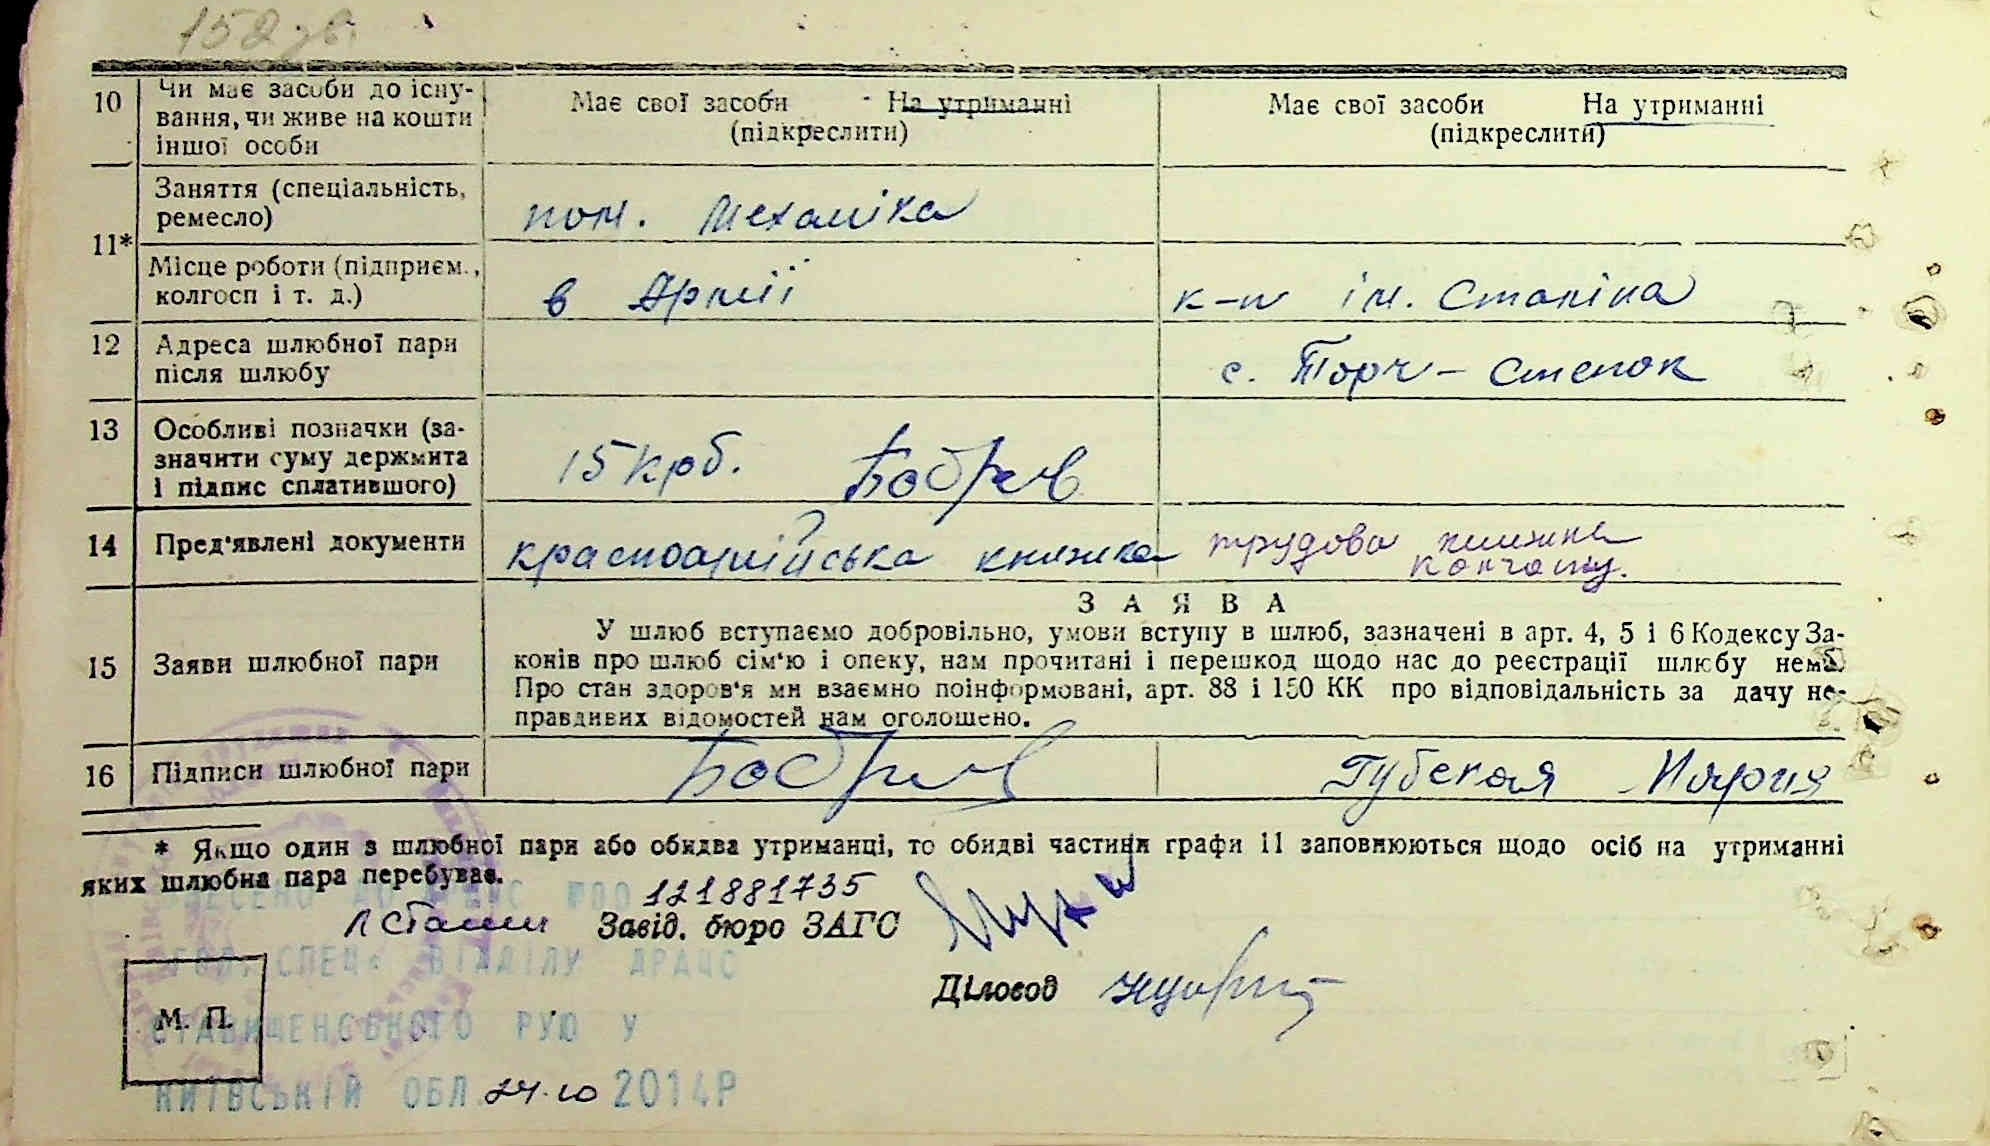 152 зв.
10 Чи має засоби до існу-
вання, чи живе на кошти
іншої особи
Має свої засоби На утриманні
(підкреслити)
Має свої засоби На утриманні
(підкреслити)
11* Заняття (спеціальність,
ремесло)
пом. механіка
Місце роботи (підприєм.,
колгосп і т. д.)
в Армії
к-п ім. Сталіна
12 Адреса шлюбної пари
після шлюбу
с. Торч-Степок
13 Особливі позначки (за-
значити суму держмита
і підпис сплатившого)
15 крб. Бобрив
14 Пред'явлені документи
красноармійська книжка
трудова книжка
колгоспу.
15 Заяви шлюбної пари
ЗАЯВА
У шлюб вступаємо добровільно, умови вступу в шлюб, зазначені в арт. 4, 5 і 6 Кодексу За-
конів про шлюб сім'ю і опеку, нам прочитані і перешкод щодо нас до реєстрації шлюбу нема.
Про стан здоров'я ми взаємно поінформовані, арт. 88 і 150 КК про відповідальність за дачу не-
правдивих відомостей нам оголошено.
16 Підписи шлюбної пари
Бобрив
Губская Мария
* Якщо один з шлюбної пари або обидва утриманці, то обидві частини графи 11 заповнюються щодо осіб на утриманні
яких шлюбна пара перебуває.
ВНЕСЕНО ДО 121881735
Завід. бюро ЗАГС
ГОЛ. СПЕЦ. ВІДДІЛУ ДРАЦС
Діловод
М. П.
СТАВИЩЕНСЬКОГО РУЮ У
КИЇВСЬКІЙ ОБЛ. 24.10 2014Р